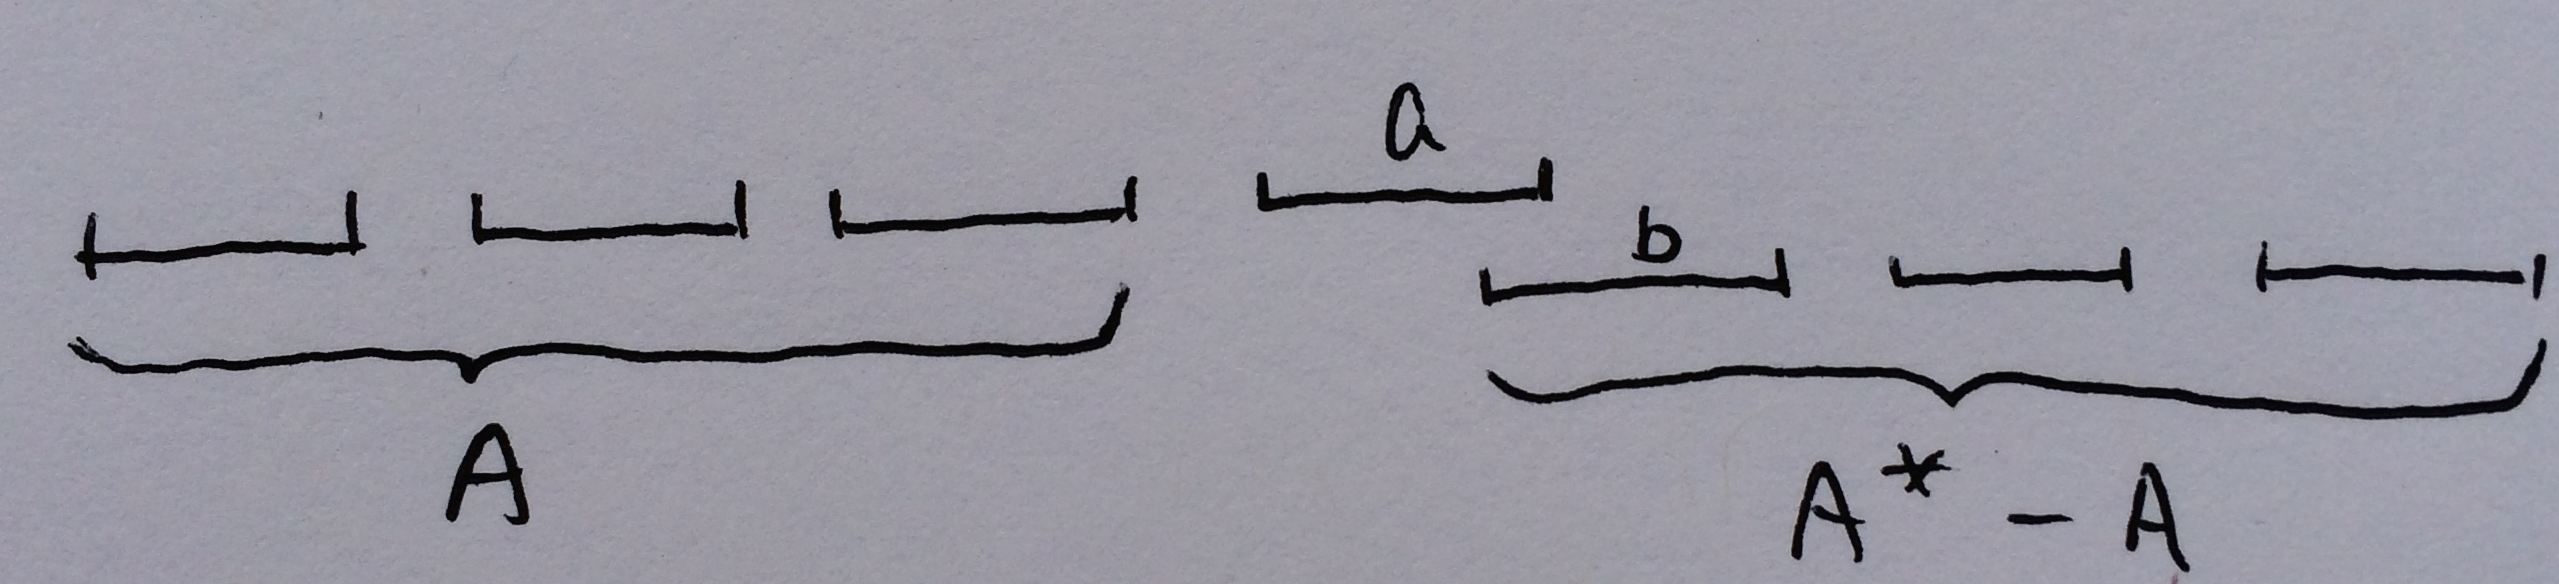 a
b
A
A* - A